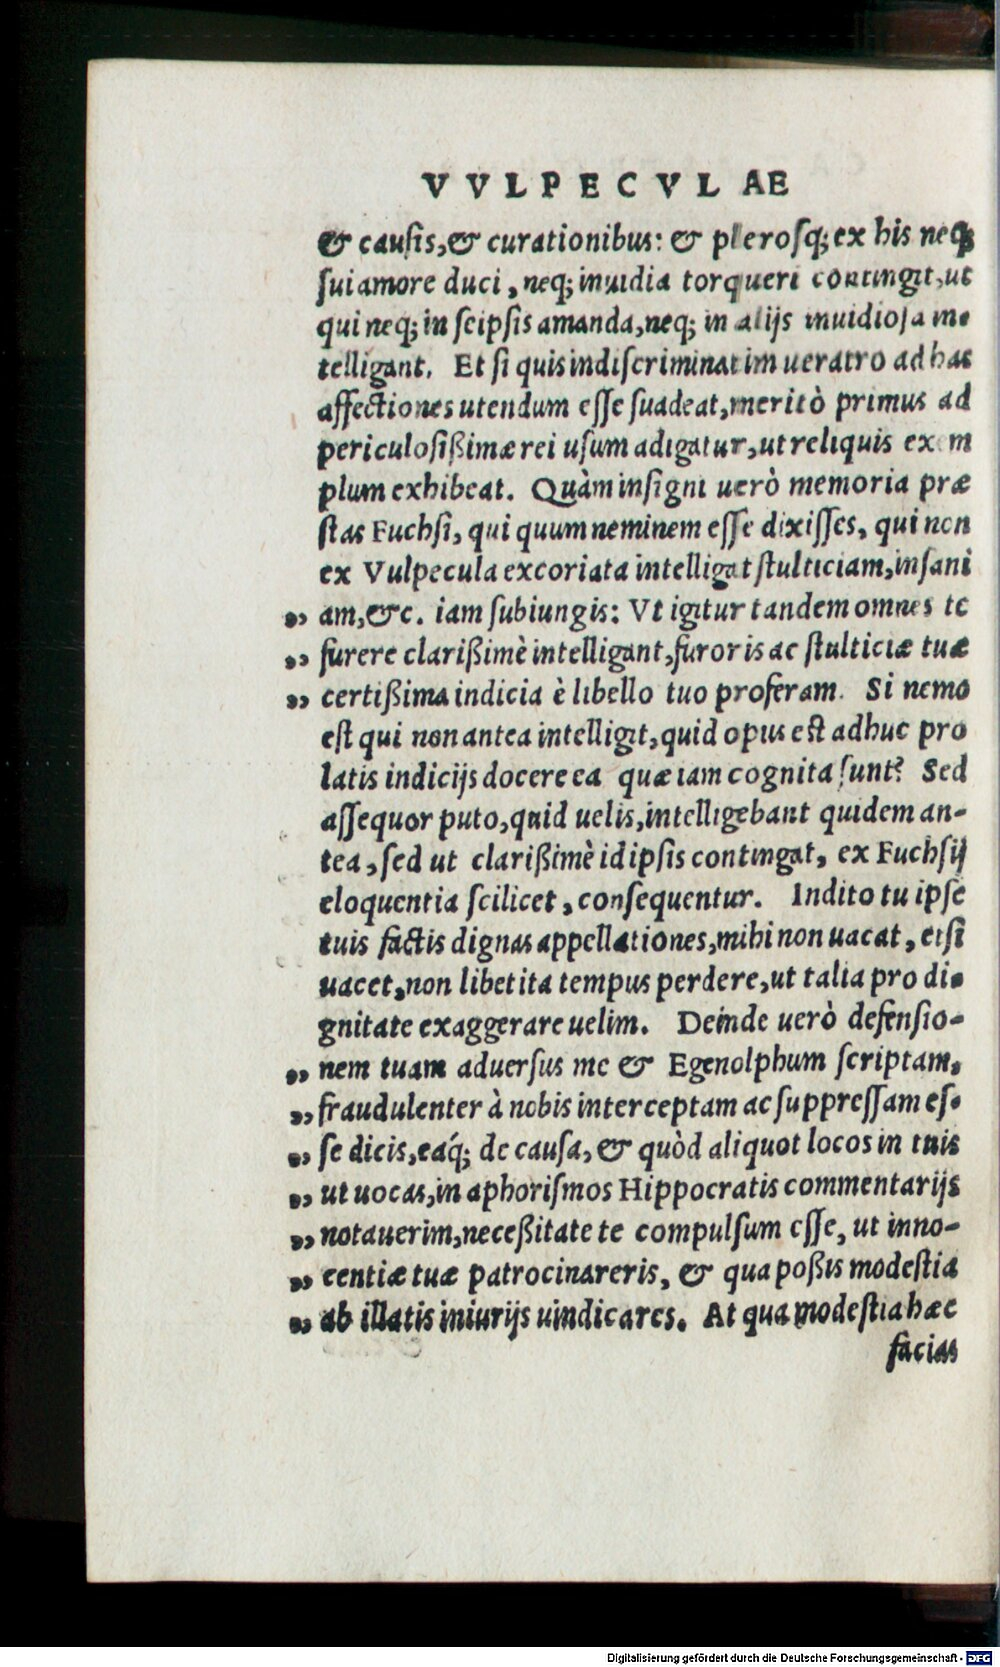 VVLPECVLAE
& causis, & curationibus: & plerosq; ex his neq;
sui amore duci, neq; inuidia torqueri contingit, ut
qui neq; in seipsis amanda, neq; in alijs inuidiosa in-
telligant. Et si quis indiscriminatim ueratro ad has
affectiones utendum esse suadeat, meritò primus ad
periculosißimæ rei usum adigatur, ut reliquis exem
plum exhibeat. Quàm insigni uerò memoria præ
stas Fuchsi, qui quum neminem esse dixisses, qui non
ex Vulpecula excoriata intelligat stulticiam, insani
„ am, &c. iam subiungis: Vt igitur tandem omnes te
„ furere clarißimè intelligant, furoris ac stulticiæ tuæ
„ certißima indicia è libello tuo proferam. Si nemo
est qui non antea intelligit, quid opus est adhuc pro
latis indicijs docere ea quæ iam cognita sunt? Sed
assequor puto, quid uelis, intelligebant quidem an-
tea, sed ut clarißimè id ipsis contingat, ex Fuchsij
eloquentia scilicet, consequentur. Indito tu ipse
tuis factis dignas appellationes, mihi non uacat, etsi
uacet, non libet ita tempus perdere, ut talia pro di-
gnitate exaggerare uelim. Deinde uerò defensio-
„ nem tuam aduersus me & Egenolphum scriptam,
„ fraudulenter à nobis interceptam ac suppressam es-
„ se dicis, eáq; de causa, & quòd aliquot locos in tuis
„ ut uocas, in aphorismos Hippocratis commentarijs
„ notauerim, neceßitate te compulsum esse, ut inno-
„ centiæ tuæ patrocinareris, & qua poßis modestia
„ ab illatis iniurijs uindicares. At qua modestia hæc
facias
Digitalisierung gefördert durch die Deutsche Forschungsgemeinschaft - DFG